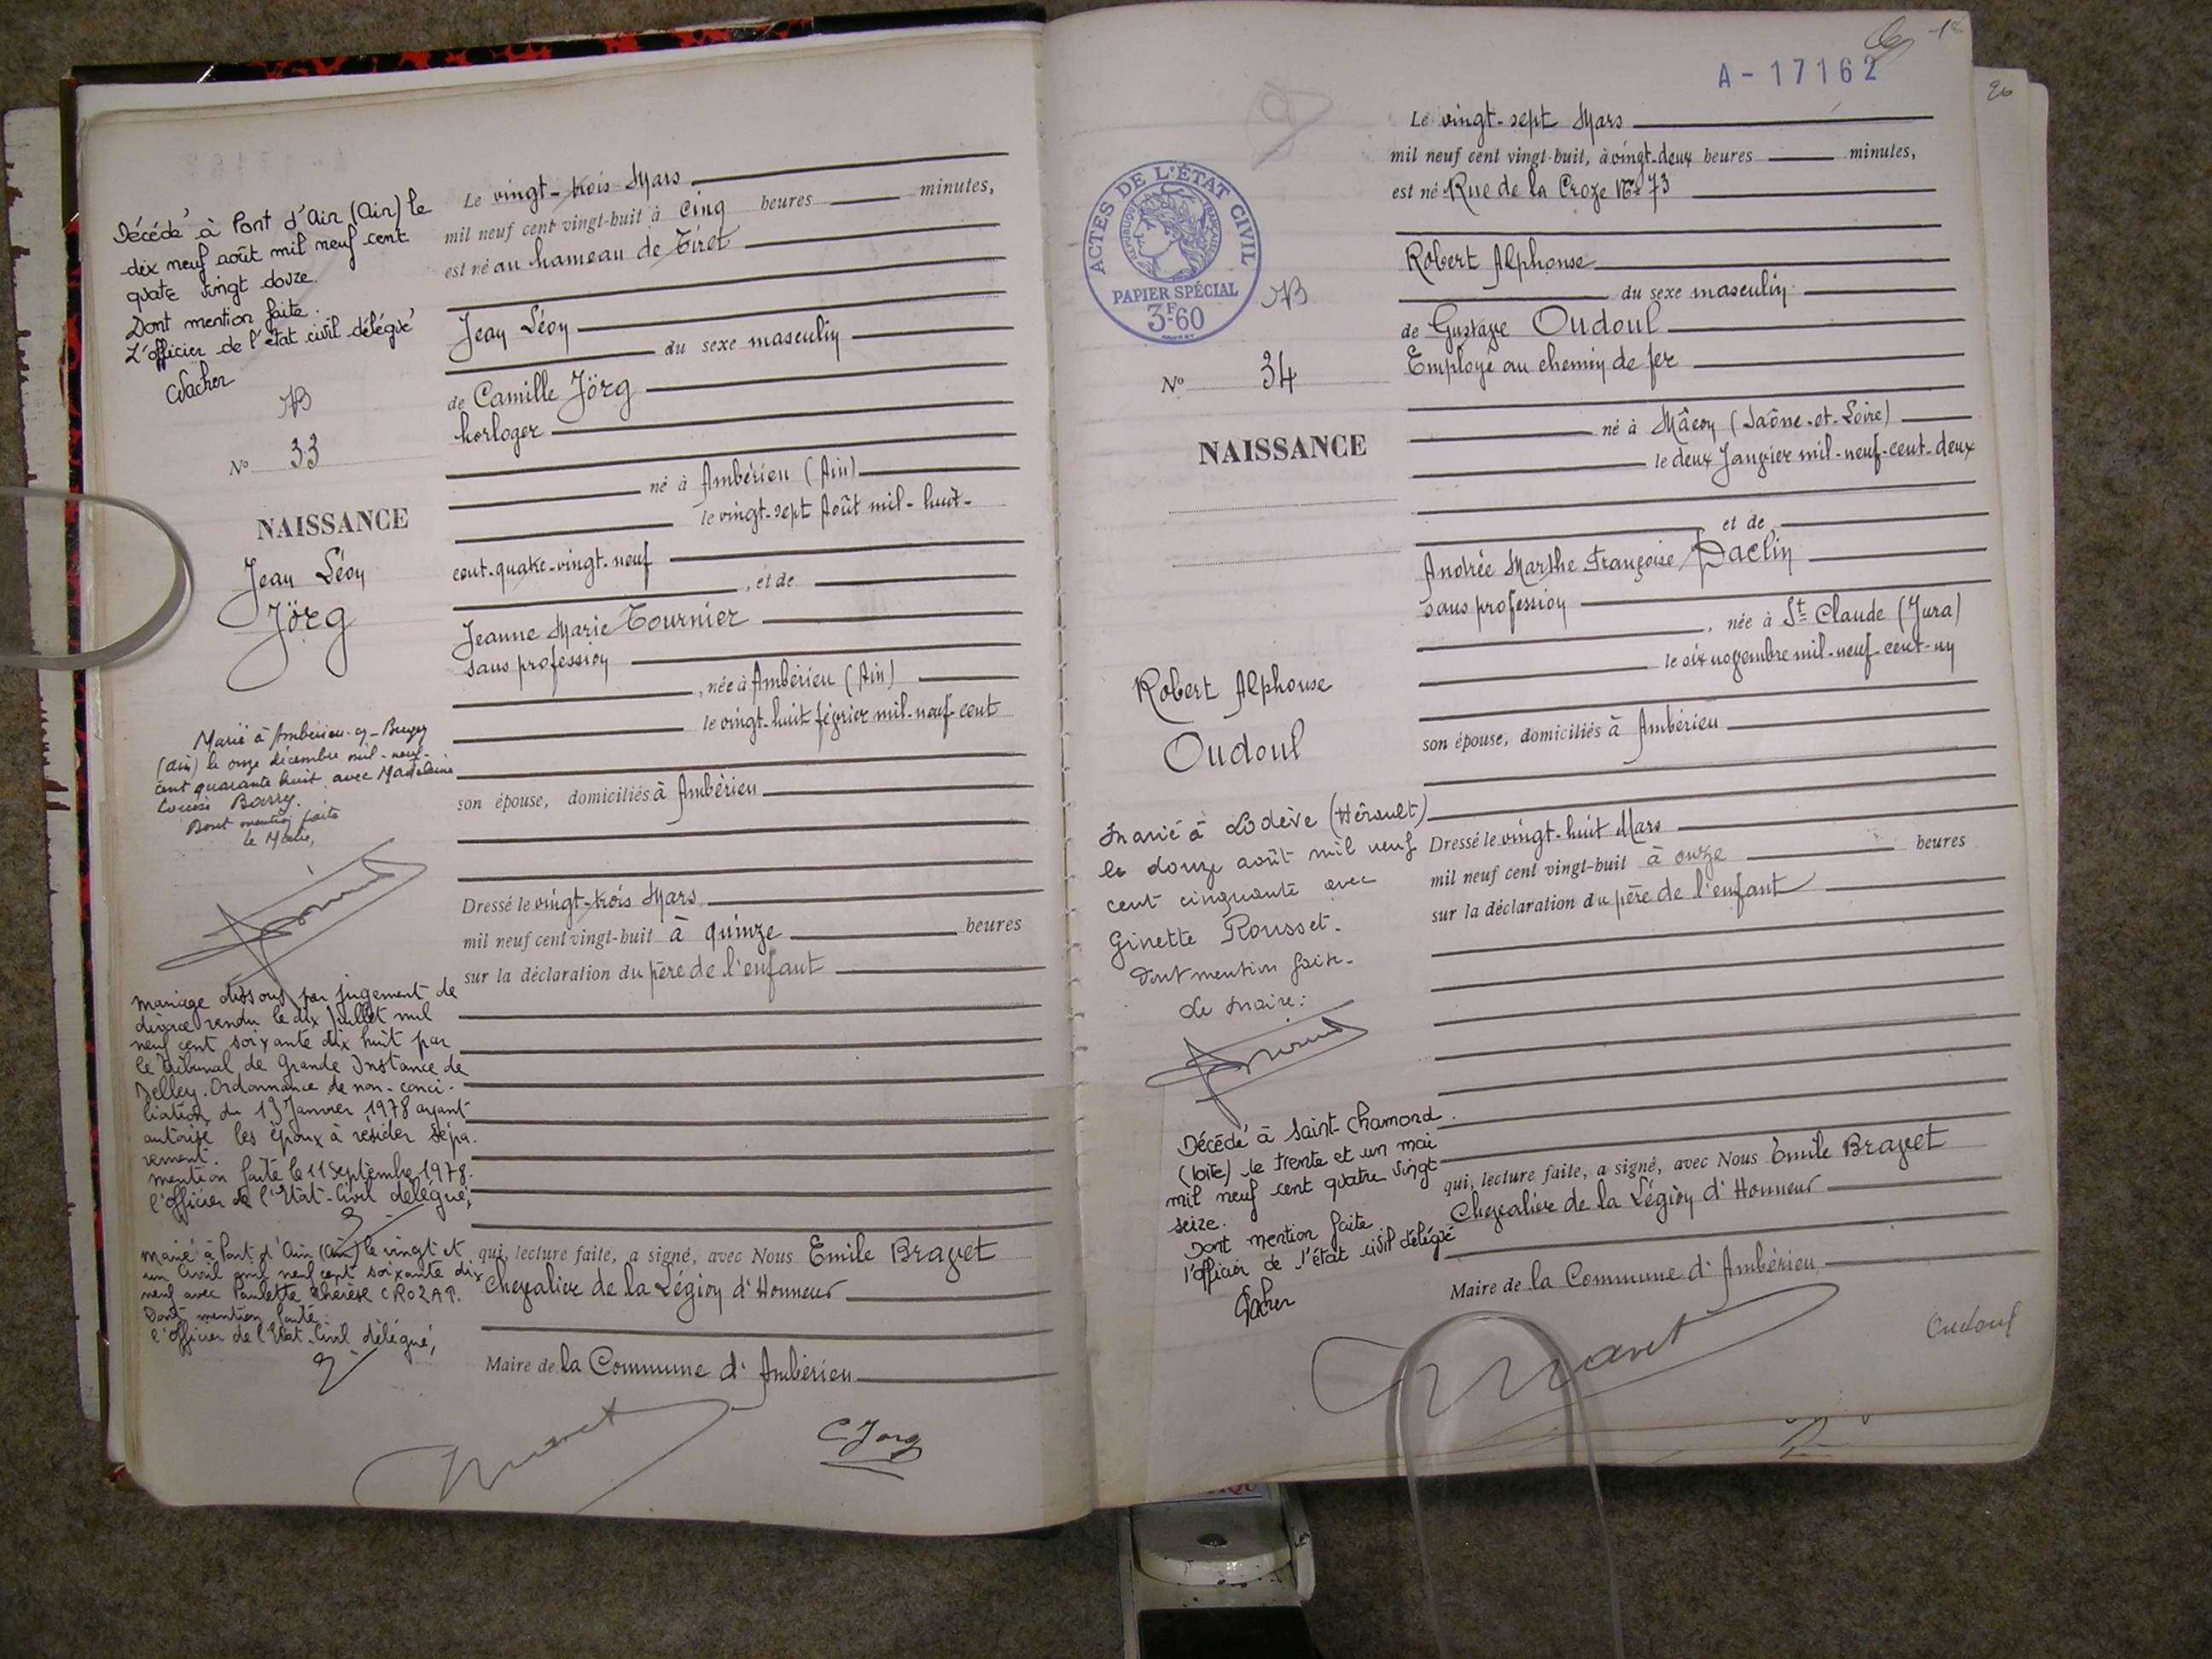 Décédé à Pont d'Ain (Ain) le
dix neuf août mil neuf cent
quatre vingt douze.
Dont mention faite.
L'officier de l'état civil délégué
N° 33
NAISSANCE
Jean Léon
Jörg
Marié à Ambérieu-en-Bugey
(Ain) le onze décembre mil-neuf-
cent quarante huit avec Madeleine
Louise Barry.
Dont mention faite
Le Maire,
Mariage dissous par jugement de
divorce rendu le dix juillet mil
neuf cent soixante dix huit par
le Tribunal de Grande Instance de
Belley. Ordonnance de non-conci-
liation du 13 Janvier 1978 ayant
autorisé les époux à résider sépa-
rement.
mention faite le 11 Septembre 1978.
l'officier de l'Etat-Civil délégué,
Marié à Pont d'Ain (Ain) le vingt et
un avril mil neuf cent soixante dix
neuf avec Paulette Thérèse CROZAT.
Dont mention faite.
l'officier de l'Etat-Civil délégué,
Le vingt-trois Mars
mil neuf cent vingt-huit à cinq heures minutes,
est né au hameau de Tiret
Jean Léon
du sexe masculin
de Camille Jörg
horloger
né à Ambérieu (Ain)
le vingt-sept Août mil-huit-
cent-quatre-vingt-neuf
, et de
Jeanne Marie Tournier
sans profession
, née à Ambérieu (Ain)
le vingt-huit février mil-neuf-cent
son épouse, domiciliés à Ambérieu
Dressé le vingt-trois Mars
mil neuf cent vingt-huit à quinze heures
sur la déclaration du père de l'enfant
qui, lecture faite, a signé, avec Nous Emile Bravet
Chevalier de la Légion d'Honneur
Maire de la Commune d'Ambérieu
C Jorg
18
A-17162
20
ACTES DE L'ÉTAT CIVIL
RÉPUBLIQUE FRANÇAISE
PAPIER SPÉCIAL
3F60
N° 34
NAISSANCE
Robert Alphonse
Oudoul
Marié à Lodève (Hérault)
le douze août mil neuf
cent cinquante avec
Ginette Rousset.
Dont mention faite.
Le Maire:
Décédé à Saint-Chamond
(Loire) le trente et un mai
mil neuf cent quatre vingt
seize.
Dont mention faite
l'officier de l'état civil délégué
Le vingt-sept Mars
mil neuf cent vingt-huit, à vingt-deux heures minutes,
est né Rue de la Croze N° 73
Robert Alphonse
du sexe masculin
de Gustave Oudoul
Employé au chemin de fer
né à Mâcon (Saône-et-Loire)
le deux Janvier mil-neuf-cent-deux
et de
Andrée Marthe Françoise Daclin
sans profession
, née à St Claude (Jura)
le six novembre mil-neuf-cent-un
son épouse, domiciliés à Ambérieu
Dressé le vingt-huit Mars
mil neuf cent vingt-huit à onze heures
sur la déclaration du père de l'enfant
qui, lecture faite, a signé, avec Nous Emile Bravet
Chevalier de la Légion d'Honneur
Maire de la Commune d'Ambérieu
Oudoul